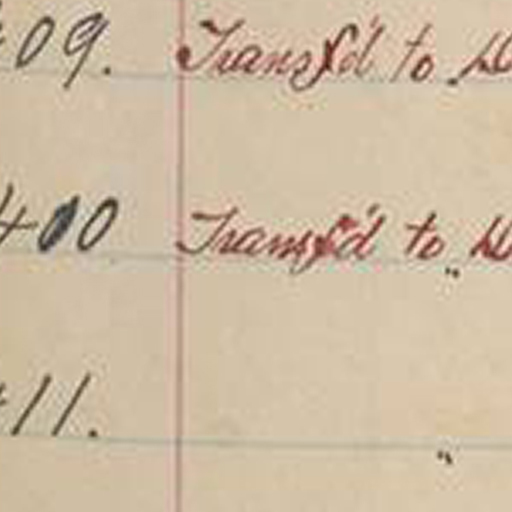 409. Transf'd to
400 Transf'd to
411.
"